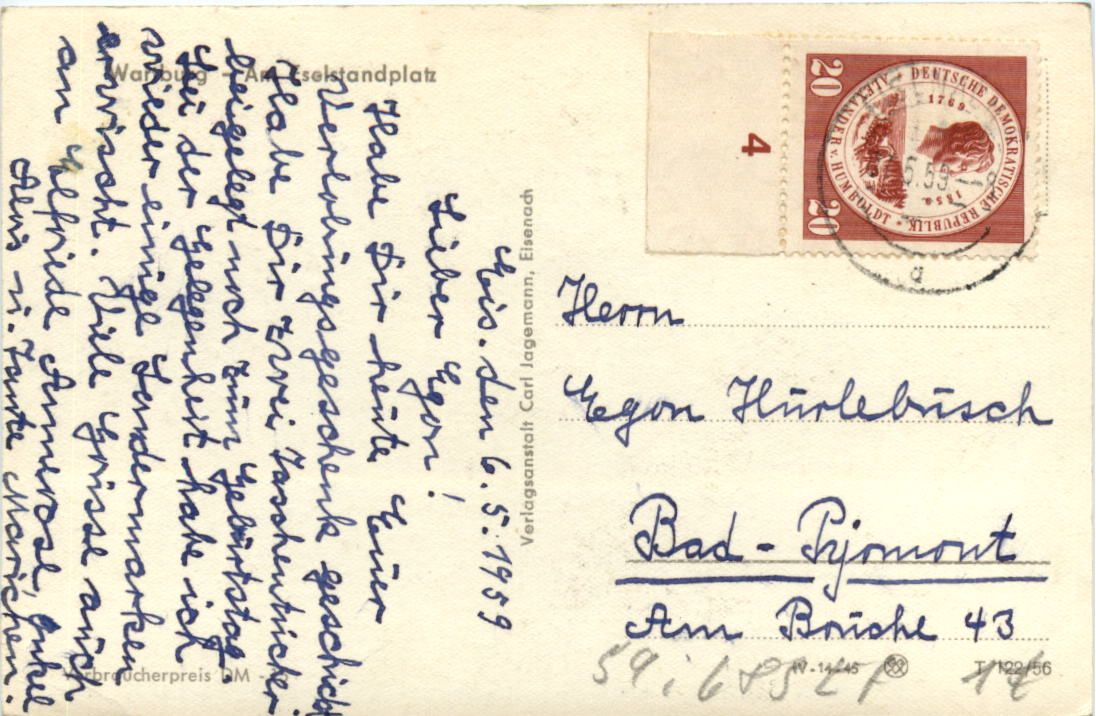 Wartburg - Am Eselstandplatz
Eis. den 6.5.1959
Lieber Egon!
Habe Dir heute Euer
Verlobungsgeschenk geschickt
Habe Dir zwei Taschentücher
beigelegt noch zum Geburtstag.
Bei der Gelegenheit habe ich
wieder einige Sondermarken
erwischt. Viele Grüsse auch
an Elfriede Annerose, Onkel
Alois u. Tante Mariechen.
Verbraucherpreis DM -
Verlagsanstalt Carl Jagemann, Eisenach
4
20
20
DEUTSCHE DEMOKRATISCHE REPUBLIK
ALEXANDER v. HUMBOLDT
1769
1859
5.59--8
a
Herrn
Egon Hürlebusch
Bad-Pyrmont
Am Bruche 43
IV-14-45
T 122/56